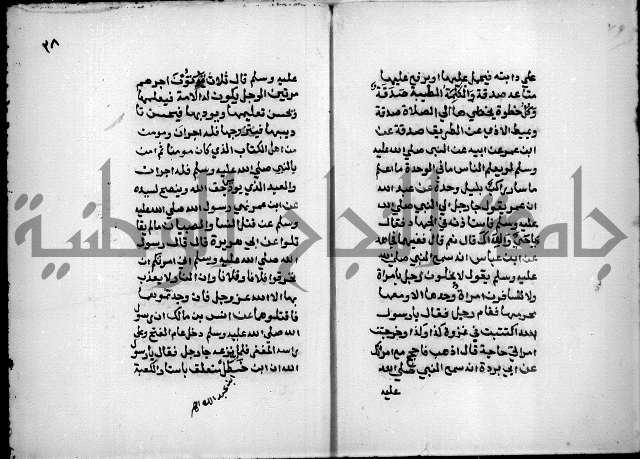 على دابته فيحمل عليها او يرفع عليها
متاعه صدقة والكلمة الطيبة صدقة
وكل خطوة يخطيها الى الصلاة صدقة
ويميط الاذى عن الطريق صدقة عن
ابن عمر عن ابيه عن النبي صلى الله عليه
وسلم لو يعلم الناس ما في الوحدة ما اعلم
ما سار راكب بليل وحدة عن عبد الله
ابن عمر يقول جا رجل الى النبي صلى الله
عليه وسلم فاستاذنه في الجهاد فقال
احي والداك قال نعم قال ففيهما فجاهد
عن ابن عباس انه سمع النبي صلى الله
عليه وسلم يقول لا يخلون رجل بامراة
ولا تسافرن امراة وحدها الا ومعها
محرمها فقام رجل فقال يا رسول
الله اكتتبت في غزوة كذا وكذا وخرجت
امراتي حاجة قال اذهب فاحج مع امراتك
عن ابي بردة انه سمع ابيه النبي صلى الله
عليه
٣٨
عليه وسلم قال ثلاث يوتون اجرهم
مرتين الرجل يكون له الامة فيعلمها
فيحسن تعليمها ويوديها فيحسن تا
ديبها فيتزوجها فله اجران ومومن
من اهل الكتاب الذي كان مومنا ثم امن
بالنبي صلى الله عليه وسلم فله اجران
والعبد الذي يودي حق الله وينصح لسيده
عن ابن عمر نهى رسول الله صلى الله عليه
وسلم عن قتل النساء والصبيان ما لم يقا
تلوا عن ابي هريرة قال قال رسول
الله صلى الله عليه وسلم اني امرتكم ان
تحرقوا فلانا وفلانا وان النار لا يعذب
بها الا الله عز وجل فان وجدتموهما
فاقتلوهما عن انس بن مالك ان رسول
الله صلى الله عليه وسلم دخل عام الفتح وعلى
راسه المغفر فلما نزعه جا رجل فقال يا رسول
الله ان ابن خطل متعلق باستار الكعبة
جامعة النجاح الوطنية